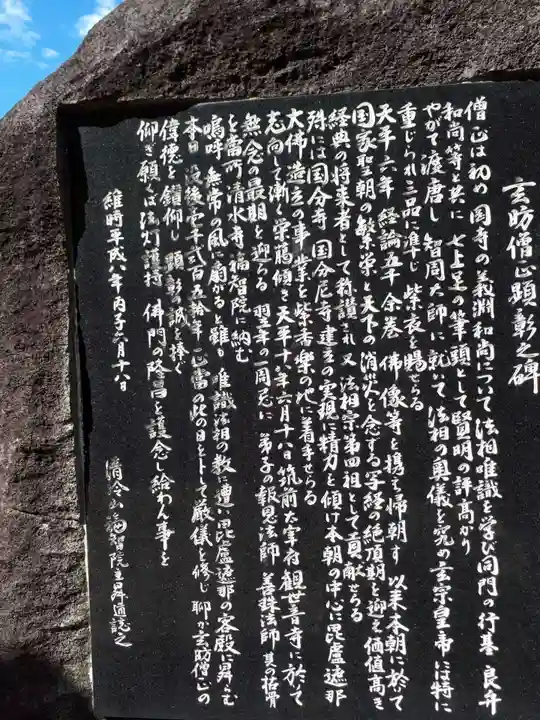 玄昉僧正顕彰之碑
僧正は初め 国寺の義渊和尚について 法相唯識を学び同門の行基 良弁
和尚等と共に 七上足の筆頭として賢明の評高かり
やがて渡唐し 智周大師に就いて 法相の奥儀を究め玄宗皇帝には特に
重じられ三品に準じ 紫衣を賜せらる
天平六年 経論五千余巻 佛像等を携え帰朝す 以来本朝に於て
国家聖朝の繁栄と天下の消災を念ずる写経の絶頂期を迎え価値高き
経典の将来者として称讃され又 法相宗第四祖として貢献せらる
殊には国分寺 国分尼寺建立の実現に精力を傾け本朝の中心に毘盧遮那
大佛造立の事業を紫香楽の地に着手せらる
志向して漸く栄蔭傾き天平十八年六月十八日筑前太宰府観世音寺に於て
無念の最期を迎らる 翌年の一周忌に 弟子の報恩法師 善珠法師 其の拾骨
を当所清水寺福智院に納む
嗚呼 無常の風に扇がると雖も 唯識法相の教に遭い毘盧遮那の客殿に昇らむ
本日 没後壱千弐百五拾年 正当の此の日を卜して厳儀を修し 聊か玄昉僧正の
偉徳を鑚仰し 顕彰の誠を捧ぐ
仰ぎ願くば法灯護持 佛門の隆昌を護念し給わん事を
維時平成八年丙子六月十八日
清冷山福智院主昇道誌之